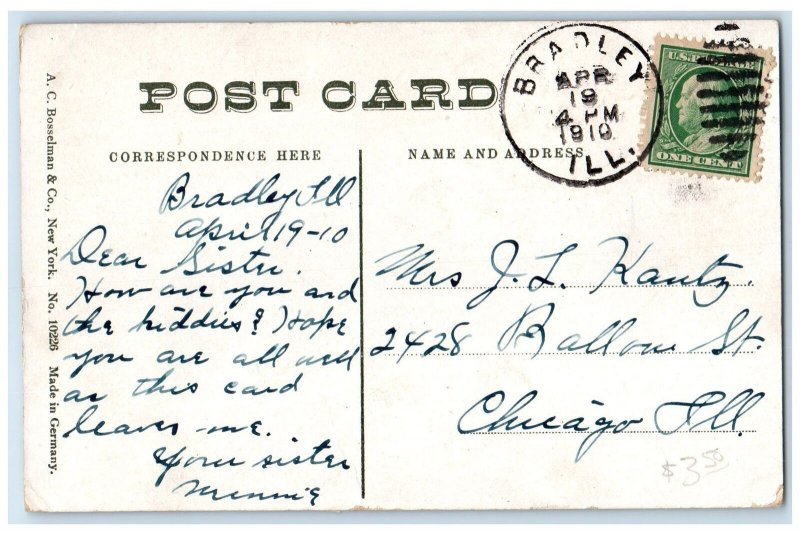 POST CARD
CORRESPONDENCE HERE
NAME AND ADDRESS
BRADLEY
APR
19
4 PM
1910
ILL.
U.S. POSTAGE
ONE CENT
A. C. Bosselman & Co., New York. No. 10226 Made in Germany.
Bradley Ill
April 19-10
Dear Sister.
How are you and
the kiddies? Hope
you are all well
as this card
leaves me.
Your sister
Minnie
Mrs J. L. Kautz.
2428 Ballou St.
Chicago Ill.
$3.50